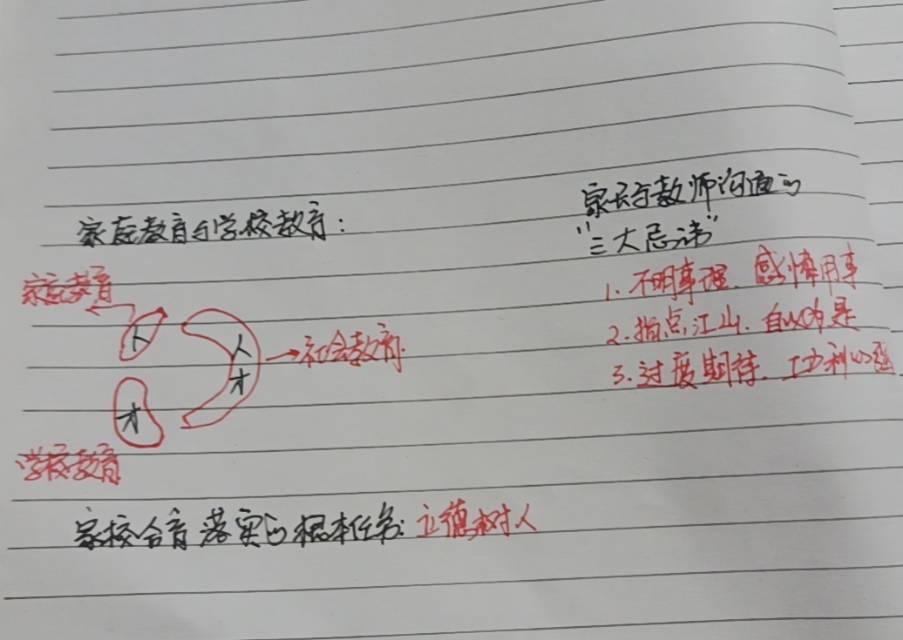 家庭教育与学校教育:
家庭教育
人
人
才
→社会教育
才
学校教育
家校合育落实的根本任务:立德树人
家长与教师沟通的
"三大忌讳"
1.不明事理、感情用事
2.指点江山、自以为是
3.过度期待、功利心强